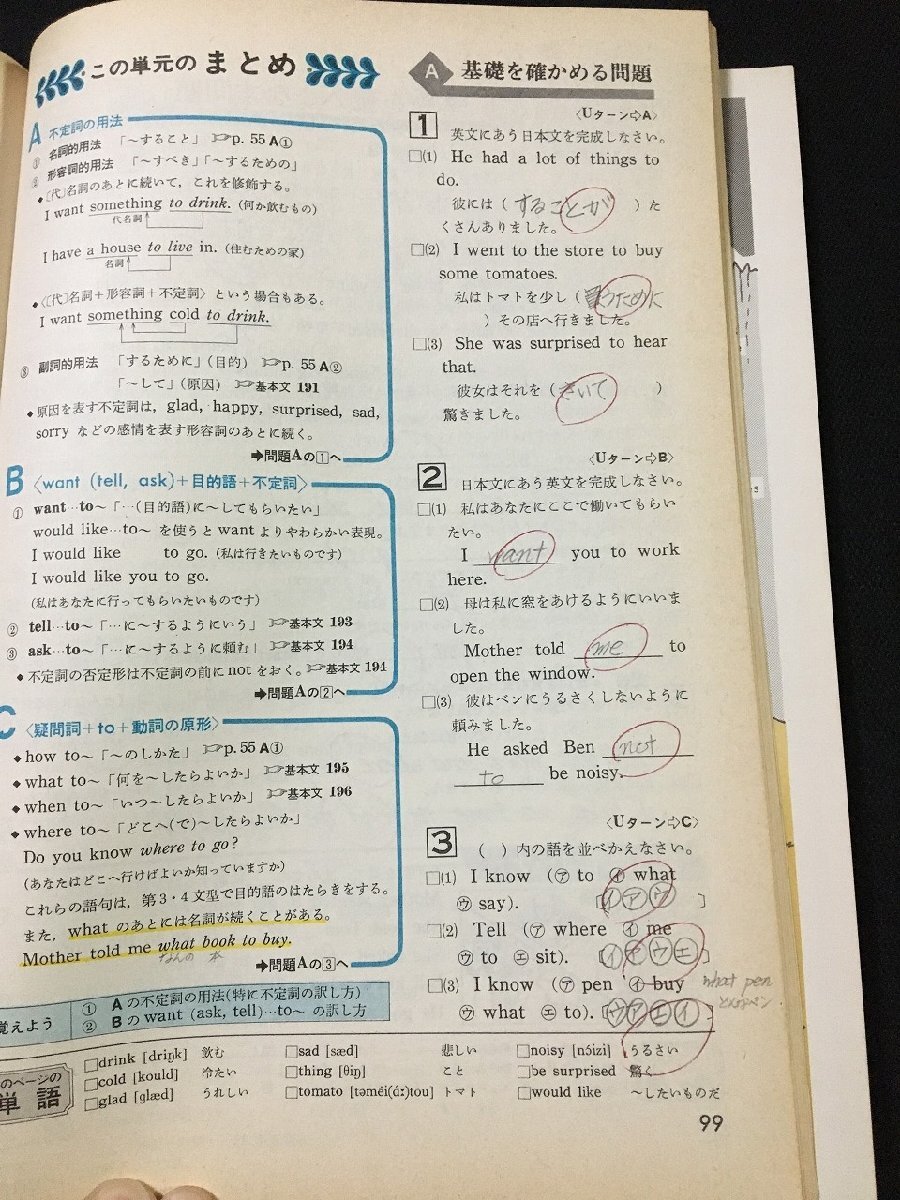 この単元の まとめ
A 不定詞の用法
① 名詞的用法 「〜すること」 ☞p. 55 A①
② 形容詞的用法 「〜すべき」「〜するための」
◆〔代〕名詞のあとに続いて，これを修飾する。
I want something to drink. (何か飲むもの)
代名詞
I have a house to live in. (住むための家)
名詞
◆〈〔代〕名詞＋形容詞＋不定詞〉という場合もある。
I want something cold to drink.
③ 副詞的用法 「するために」(目的) ☞p. 55 A②
「〜して」(原因) ☞基本文 191
◆原因を表す不定詞は, glad, happy, surprised, sad,
sorry などの感情を表す形容詞のあとに続く。
➡問題Aの1へ
B 〈want (tell, ask)＋目的語＋不定詞〉
① want…to〜「…(目的語)に〜してもらいたい」
would like…to〜 を使うと want よりやわらかい表現。
I would like to go. (私は行きたいものです)
I would like you to go.
(私はあなたに行ってもらいたいものです)
② tell…to〜「…に〜するようにいう」 ☞基本文 193
③ ask…to〜「…に〜するように頼む」 ☞基本文 194
◆不定詞の否定形は不定詞の前に not をおく。☞基本文 194
➡問題Aの2へ
C 〈疑問詞＋to＋動詞の原形〉
◆how to〜「〜のしかた」 ☞p. 55 A①
◆what to〜「何を〜したらよいか」 ☞基本文 195
◆when to〜「いつ〜したらよいか」 ☞基本文 196
◆where to〜「どこへ(で)〜したらよいか」
Do you know where to go?
(あなたはどこへ行けばよいか知っていますか)
これらの語句は，第3・4文型で目的語のはたらきをする。
また, what のあとには名詞が続くことがある。
Mother told me what book to buy.
なんの 本
➡問題Aの3へ
覚えよう
① Aの不定詞の用法(特に不定詞の訳し方)
② Bの want (ask, tell)…to〜 の訳し方
A 基礎を確かめる問題
〈Uターン⇨A〉
1 英文にあう日本文を完成しなさい。
□(1) He had a lot of things to
do.
彼には ( することが ) た
くさんありました。
□(2) I went to the store to buy
some tomatoes.
私はトマトを少し ( うために
) その店へ行きました。
□(3) She was surprised to hear
that.
彼女はそれを ( きいて )
驚きました。
〈Uターン⇨B〉
2 日本文にあう英文を完成しなさい。
□(1) 私はあなたにここで働いてもらい
たい。
I want you to work
here.
□(2) 母は私に窓をあけるようにいいま
した。
Mother told me to
open the window.
□(3) 彼はベンにうるさくしないように
頼みました。
He asked Ben not
to be noisy.
〈Uターン⇨C〉
3 ( ) 内の語を並べかえなさい。
□(1) I know (㋐ to ㋑ what
㋒ say). 〔㋑㋐㋒〕
□(2) Tell (㋐ where ㋑ me
㋒ to ㋓ sit). 〔㋑㋐㋒㋓〕
□(3) I know (㋐ pen ㋑ buy
㋒ what ㋓ to). 〔㋒㋐㋓㋑〕
what pen
どんなペン
のページの
単語
□drink [driŋk] 飲む
□cold [kould] 冷たい
□glad [glæd] うれしい
□sad [sæd] 悲しい
□thing [θiŋ] こと
□tomato [təméi(ɑ́ː)tou] トマト
□noisy [nɔ́izi] うるさい
□be surprised 驚く
□would like 〜したいものだ
99